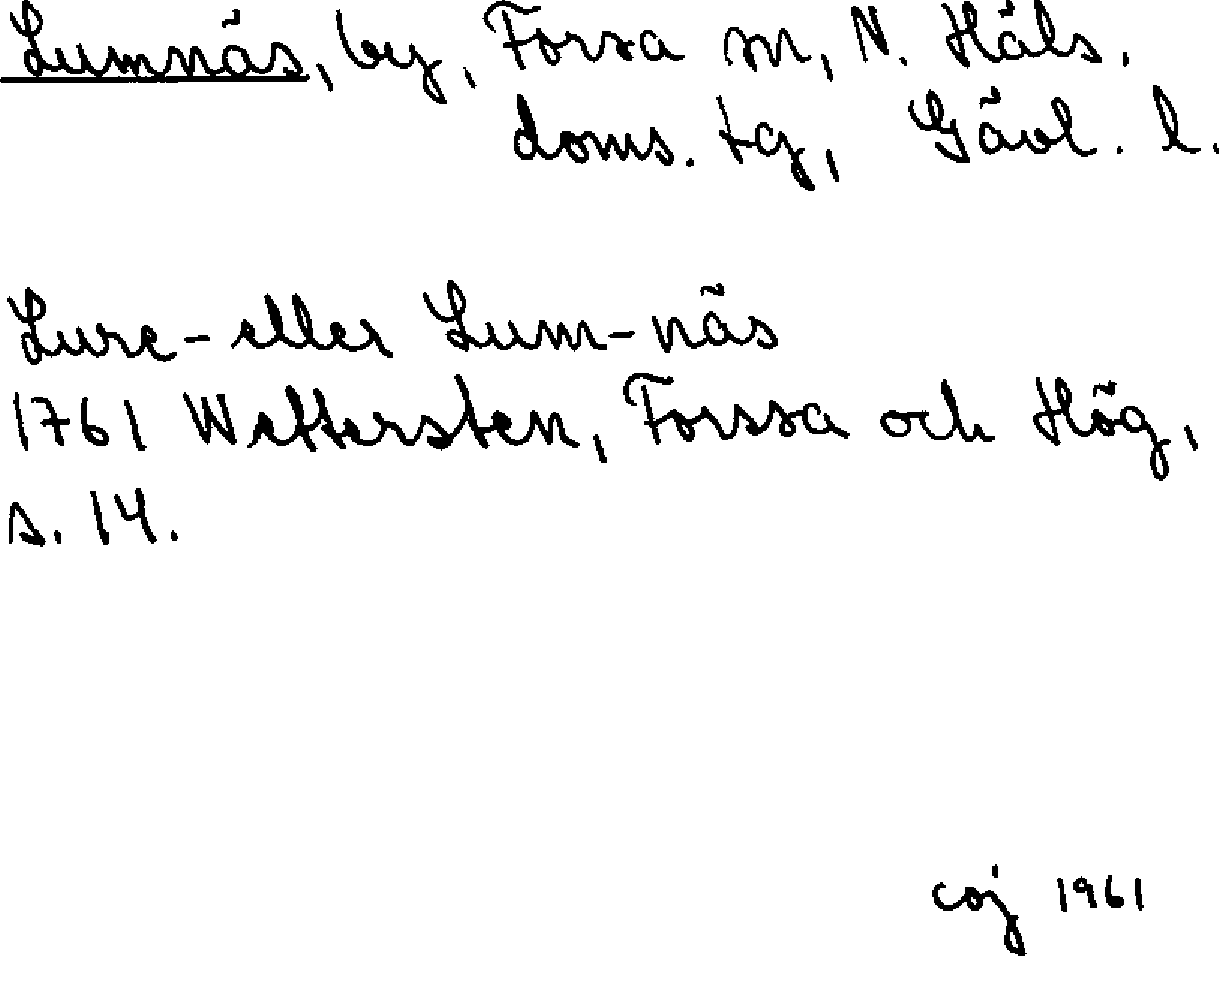 Lumnäs, by, Forsa sn, N. Häls.
doms. tg, Gävl. l.
Lure- eller Lum-näs
1761 Wettersten, Forssa och Hög,
s. 14.
coj 1961